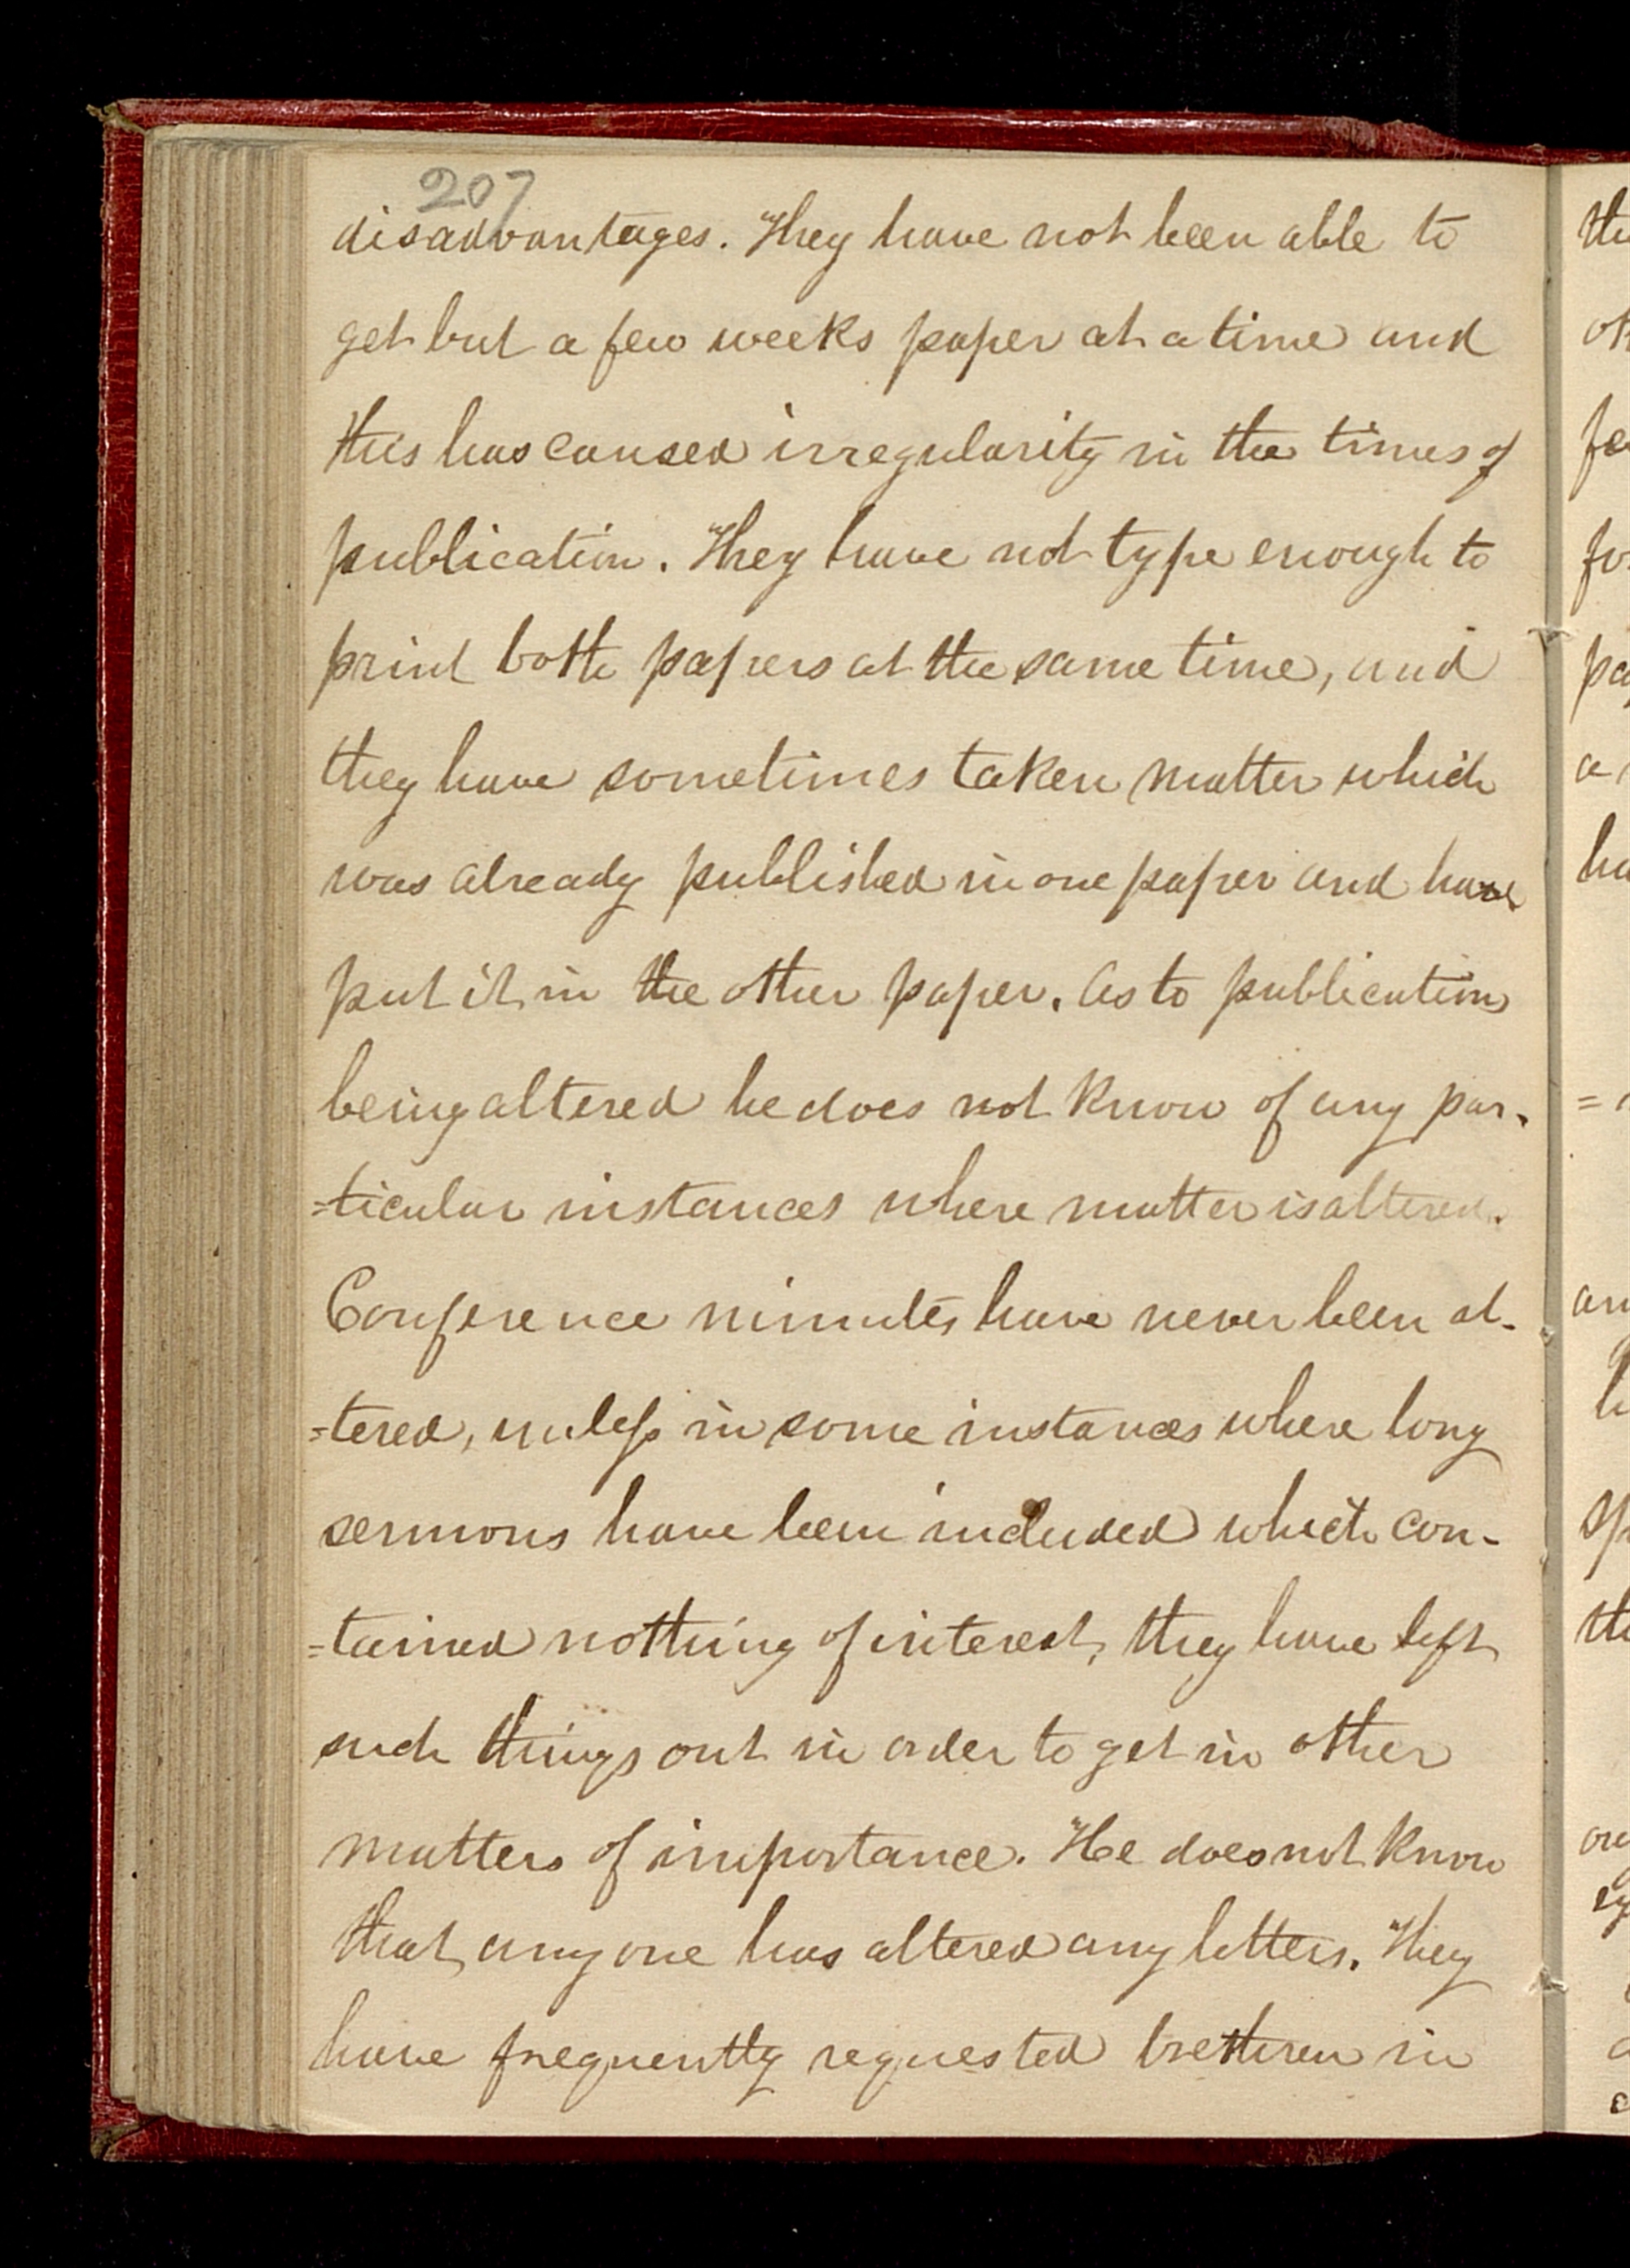 207
disadvantages. They have not been able to
get but a few weeks paper at a time and
this has caused irregularity in the times of
publication. They have not type enough to
print both papers at the same time, and
they have sometimes taken matter which
was already published in one paper and have
put it in the other paper. As to publications
being altered he does not know of any par-
=ticular instances where matter is altered.
Conference minutes have never been al-
=tered, unless in some instances where long
sermons have been included which con-
=tained nothing of interest, they have left
such things out in order to get in other
matters of importance. He does not know
that any one has altered any letters. They
have frequently requested brethren in